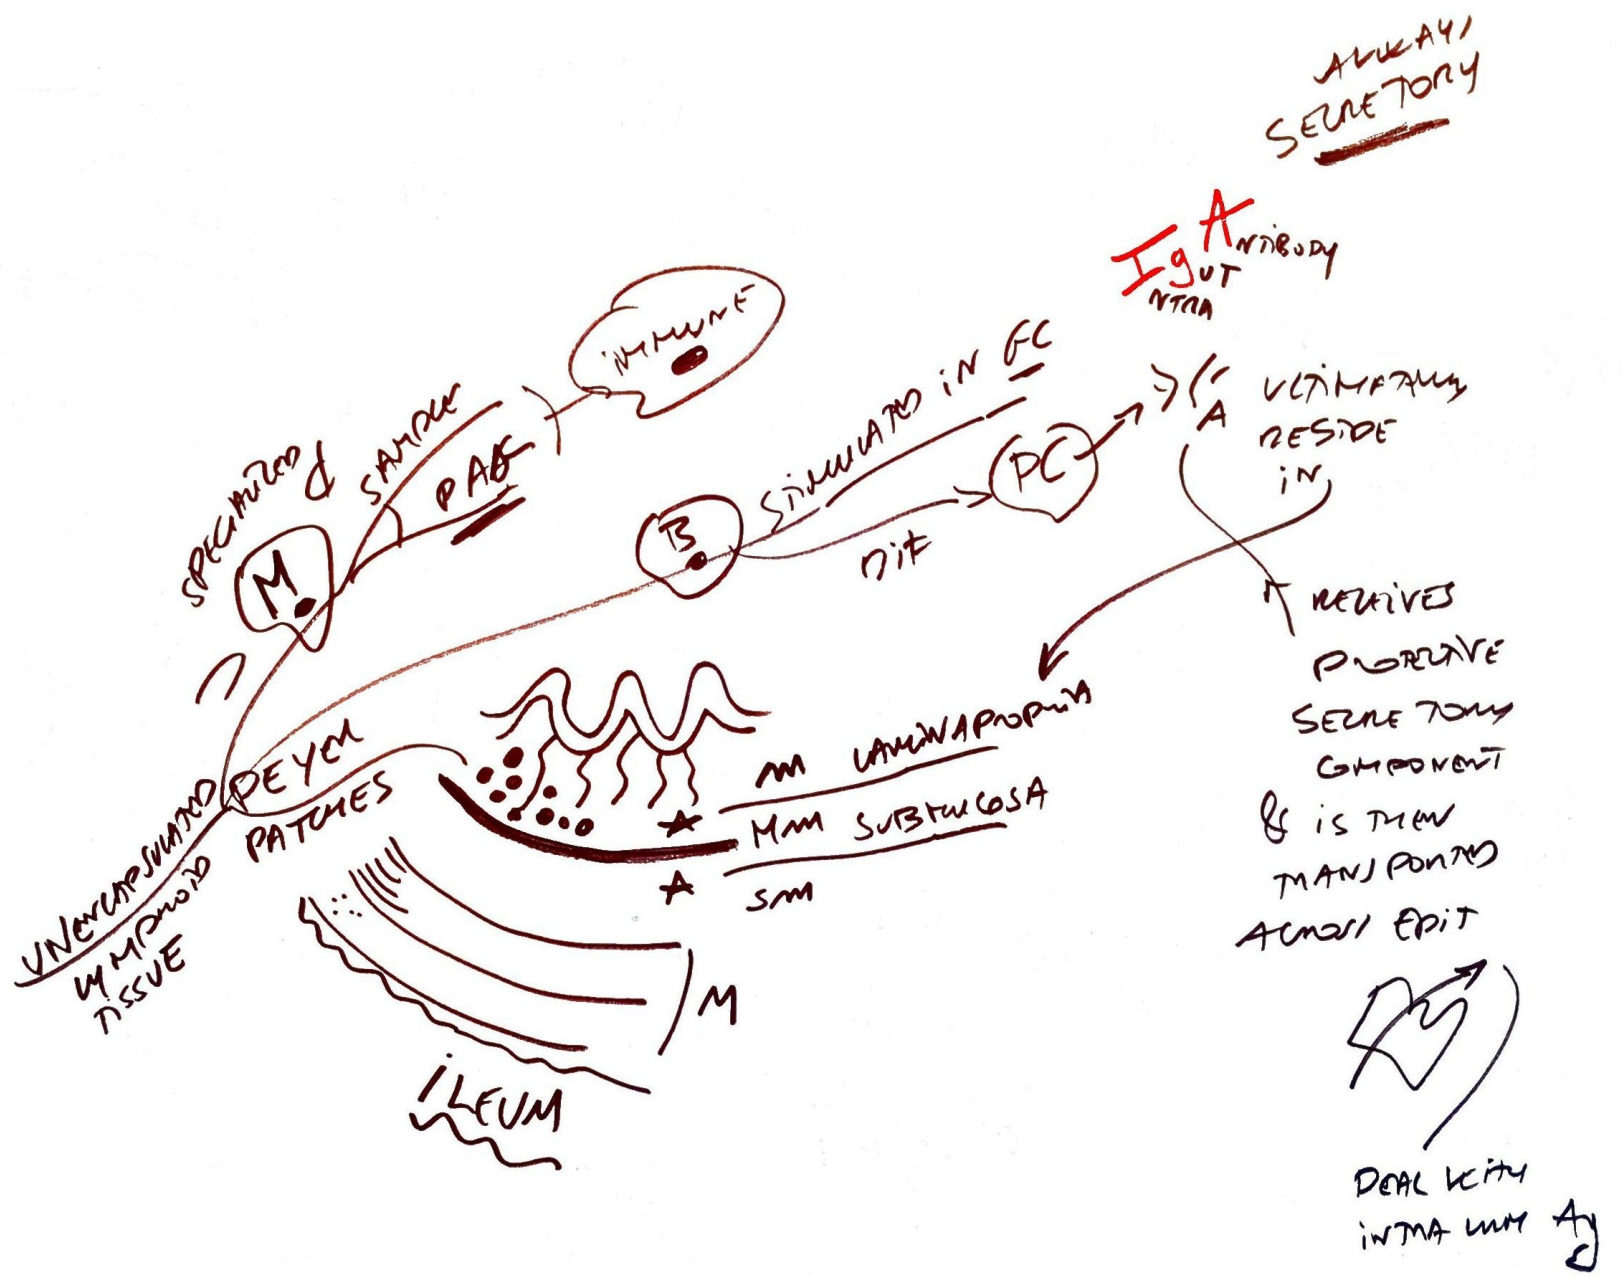 ALWAYS
SECRETORY
IgA
NTIBODY
UT
NTRA
IMMUNE
SPECIALIZED
SAMPLE
PAG
M
B
STIMULATED IN GC
DIF
PC
A
ULTIMATELY
RESIDE
IN
RECEIVES
PROTECTIVE
SECRETORY
COMPONENT
& IS THEN
TRANSPORTED
ACROSS EPIT
DEAL WITH
INTRA LUM Ag
UNENCAPSULATED
LYMPHOID
TISSUE
PEYER
PATCHES
M LAMINA PROPRIA
MM SUBMUCOSA
SM
M
ILEUM